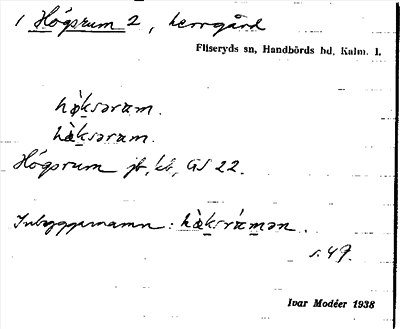 1 Högsrum 2, herrgård
Fliseryds sn, Handbörds hd, Kalm. l.
hø̀ksərum.
hæ̀ksərum.
Högsrum jb, kb, GS 22.
Inbyggarnamn: hæ̀ksrúmən.
s. 49.
Ivar Modéer 1938